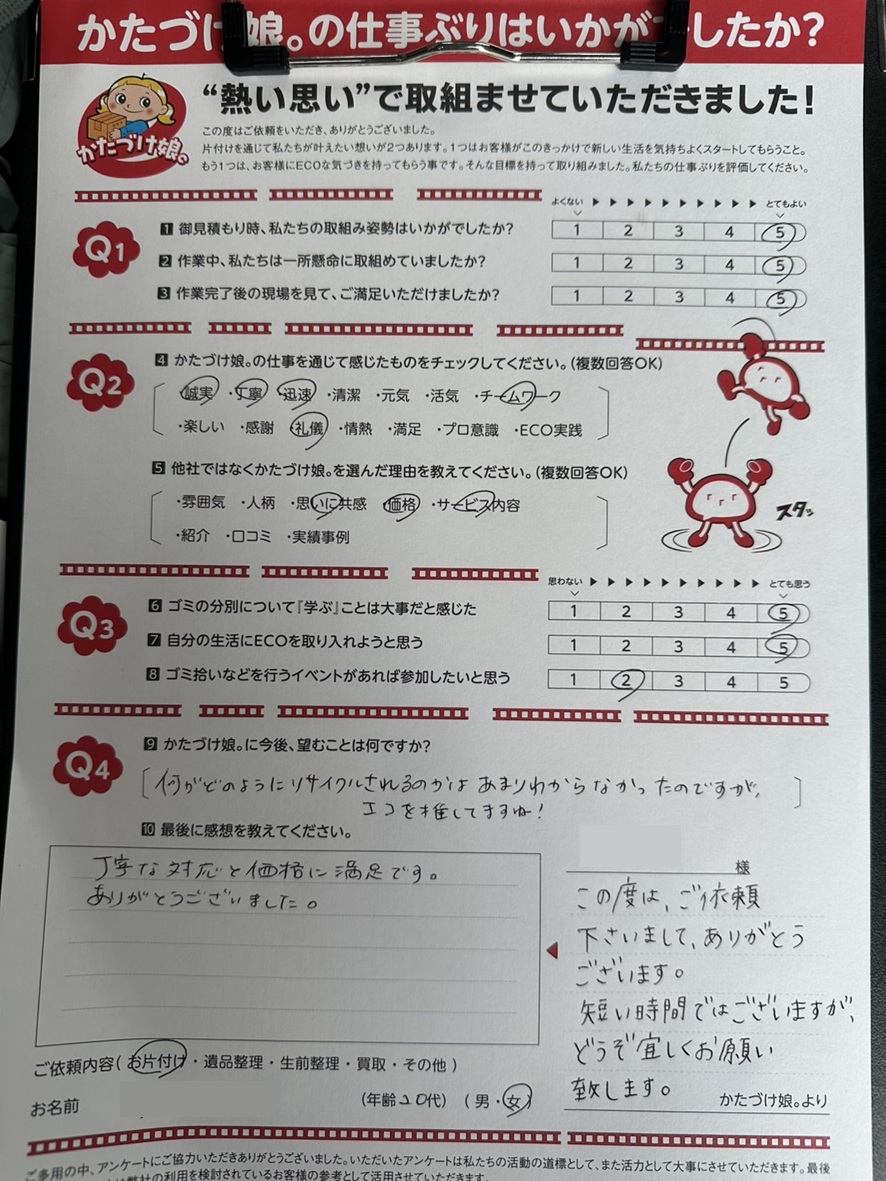 かたづけ娘。の仕事ぶりはいかがでしたか?
“熱い思い”で取組ませていただきました!
かたづけ娘。
この度はご依頼をいただき、ありがとうございました。
片付けを通じて私たちが叶えたい想いが2つあります。1つはお客様がこのきっかけで新しい生活を気持ちよくスタートしてもらうこと。
もう1つは、お客様にECOな気づきを持ってもらう事です。そんな目標を持って取り組みました。私たちの仕事ぶりを評価してください。
よくない ▶▶▶▶▶▶▶▶▶▶ とてもよい
Q1
1 御見積もり時、私たちの取組み姿勢はいかがでしたか? 1 2 3 4 5
2 作業中、私たちは一所懸命に取組めていましたか? 1 2 3 4 5
3 作業完了後の現場を見て、ご満足いただけましたか? 1 2 3 4 5
Q2
4 かたづけ娘。の仕事を通じて感じたものをチェックしてください。(複数回答OK)
・誠実 ・丁寧 ・迅速 ・清潔 ・元気 ・活気 ・チームワーク
・楽しい ・感謝 ・礼儀 ・情熱 ・満足 ・プロ意識 ・ECO実践
5 他社ではなくかたづけ娘。を選んだ理由を教えてください。(複数回答OK)
・雰囲気 ・人柄 ・思いに共感 ・価格 ・サービス内容
・紹介 ・口コミ ・実績事例
スタッ
思わない ▶▶▶▶▶▶▶▶▶▶ とても思う
Q3
6 ゴミの分別について『学ぶ』ことは大事だと感じた 1 2 3 4 5
7 自分の生活にECOを取り入れようと思う 1 2 3 4 5
8 ゴミ拾いなどを行うイベントがあれば参加したいと思う 1 2 3 4 5
Q4
9 かたづけ娘。に今後、望むことは何ですか?
何がどのようにリサイクルされるのかはあまりわからなかったのですが、
エコを推してますね!
10 最後に感想を教えてください。
丁寧な対応と価格に満足です。
ありがとうございました。
様
この度は、ご依頼
下さいまして、ありがとう
ございます。
短い時間ではございますが、
どうぞ宜しくお願い
致します。
かたづけ娘。より
ご依頼内容(お片付け・遺品整理・生前整理・買取・その他)
お名前 (年齢20代) (男・女)
ご多用の中、アンケートにご協力いただきありがとうございました。いただいたアンケートは私たちの活動の道標として、また活力として大事にさせていただきます。最後
は弊社の利用を検討されているお客様の参考として活用させていただきます。